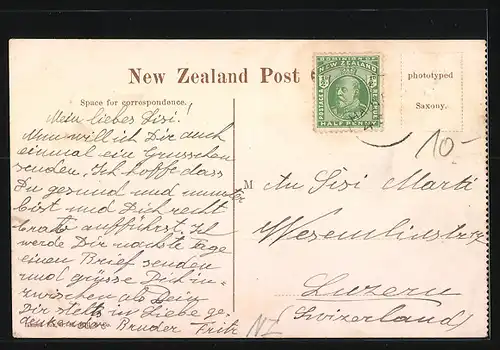 New Zealand Post
DOMINION OF
NEW ZEALAND
POSTAGE
REVENUE
HALF PENNY
phototyped
Saxony.
Space for correspondence.
Mein liebes Sisi!
Nun will ich Dir auch
einmal ein Grusschen
senden. Ich hoffe dass
Du gesund und munter
bist und Dich recht
brav aufführst. Ich
werde Dir nächste Tage
einen Brief senden
und grüsse Dich in-
zwischen als Dein
Dir stets in Liebe ge-
denkender Bruder Fritz
10-
M
An Sisi Marti
Luzern
(Switzerland)
NZ